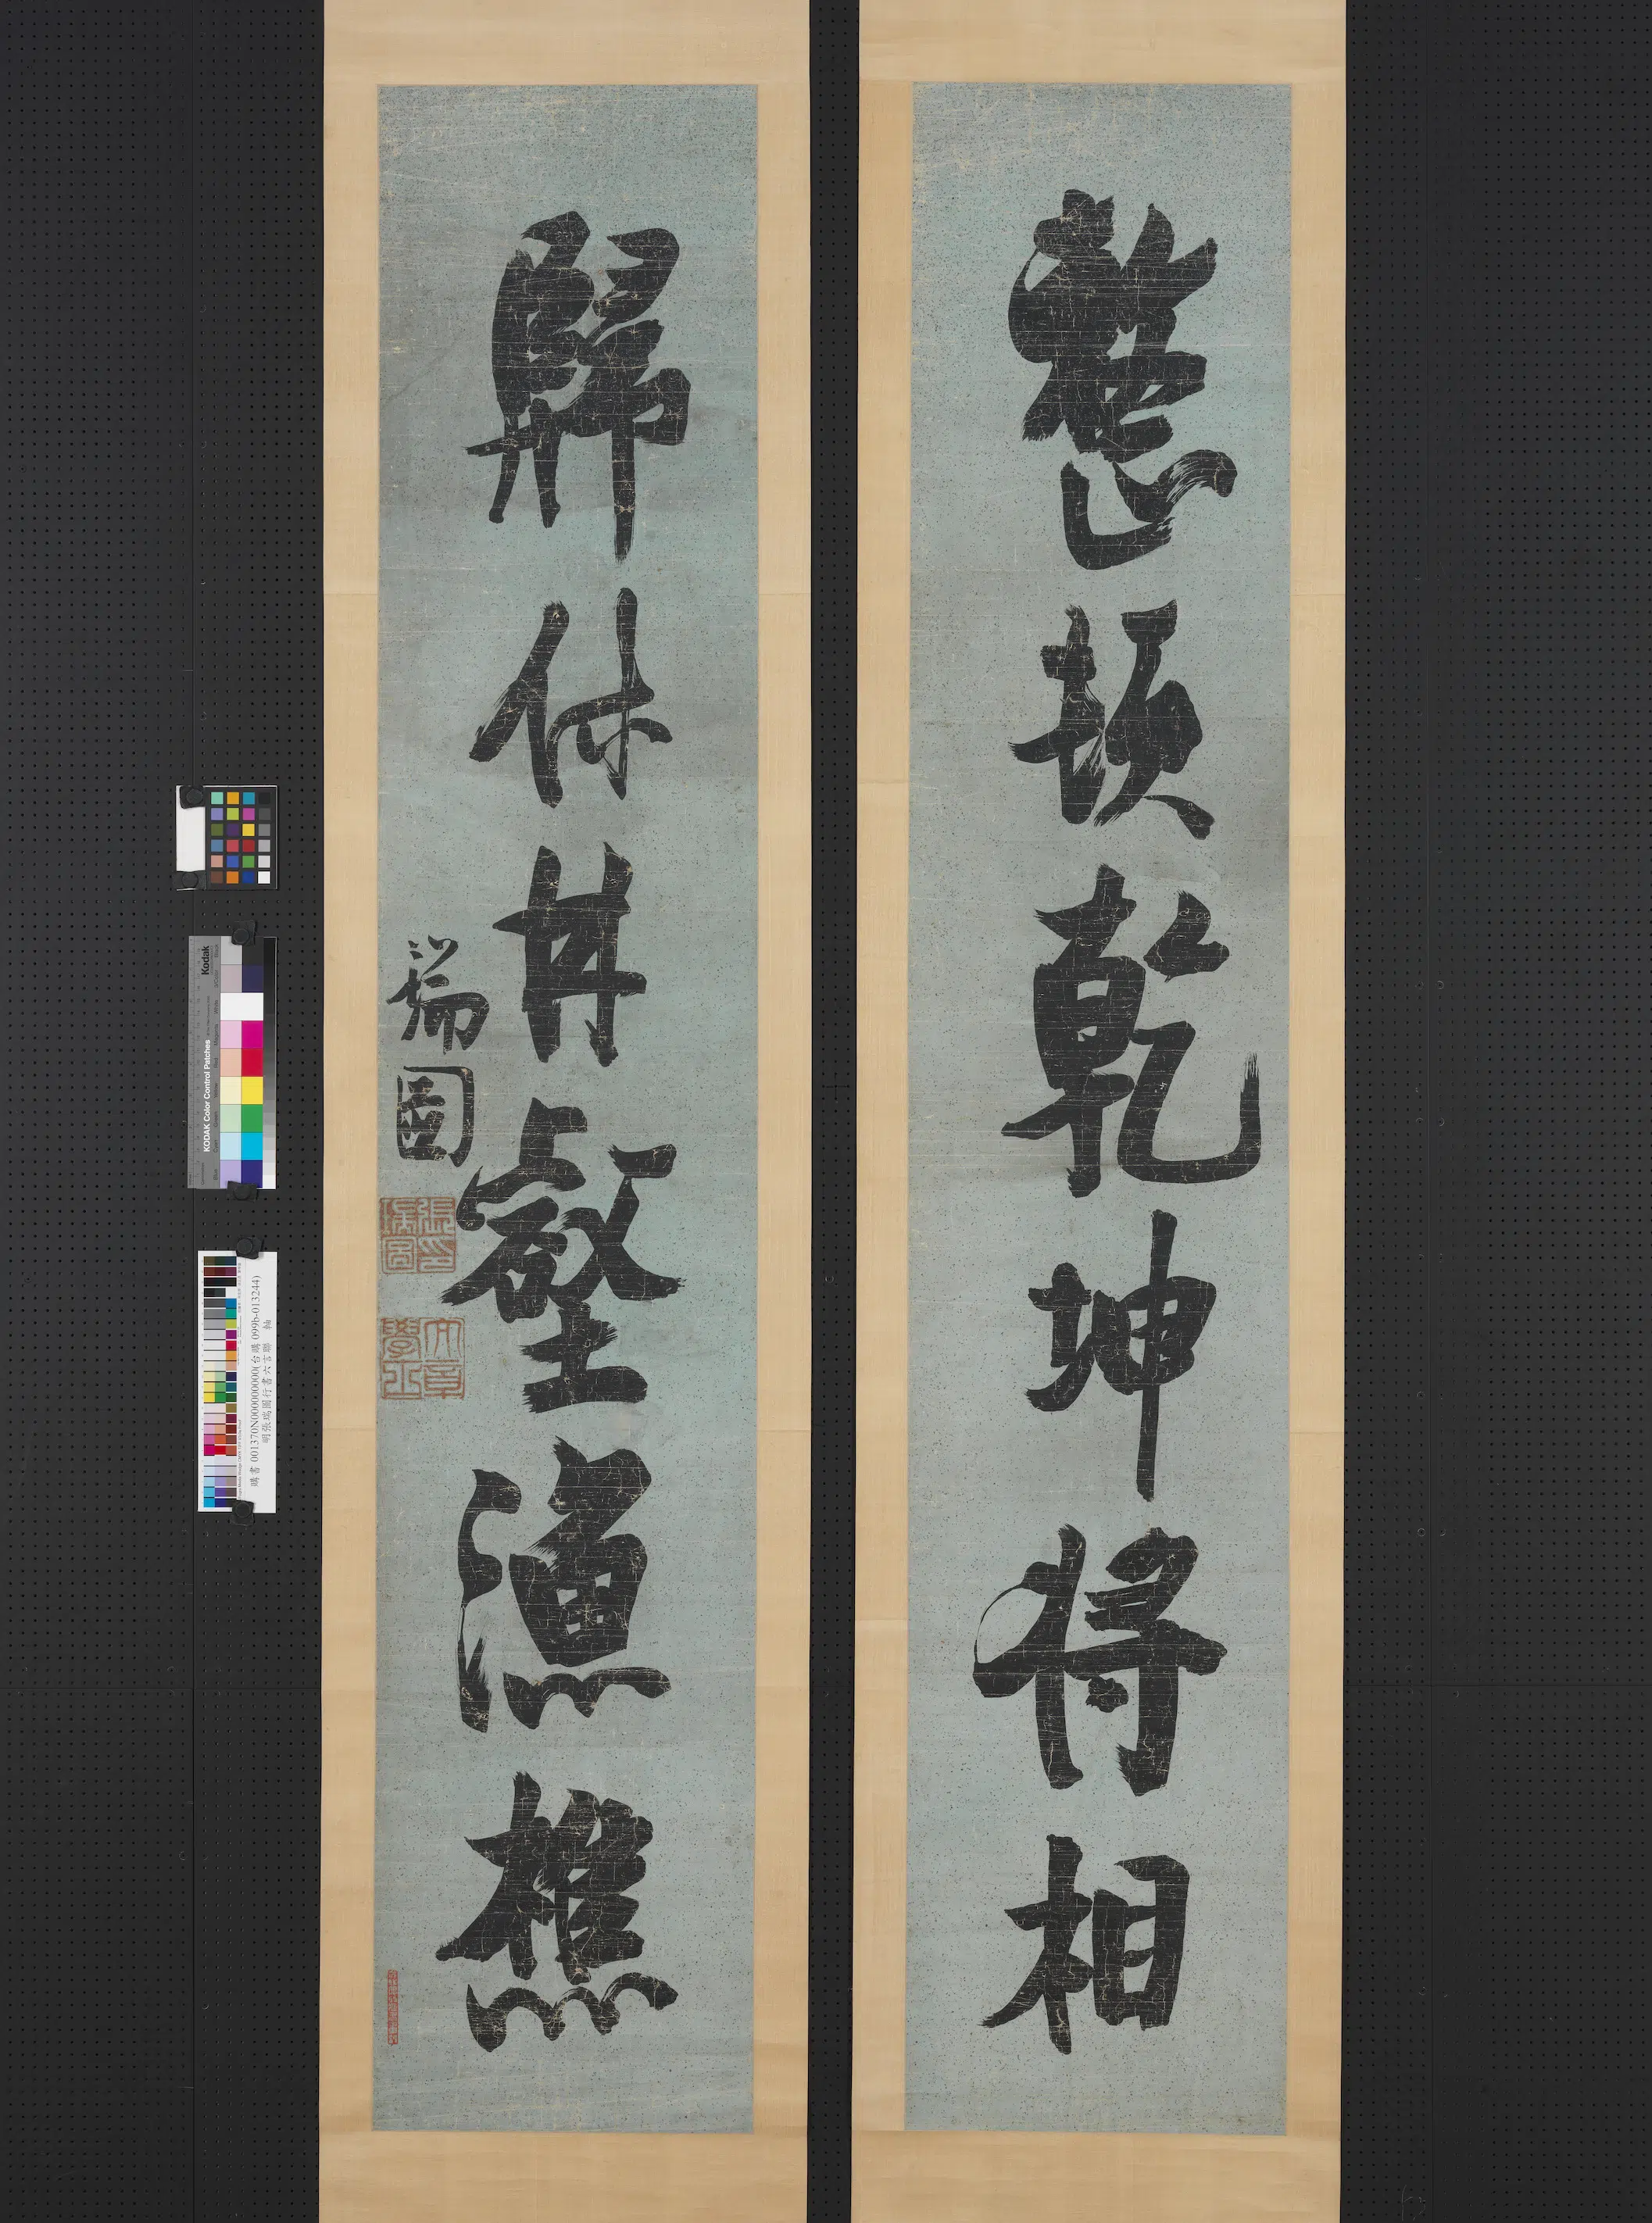 整頓乾坤將相
歸休林壑漁樵
瑞圖
張瑞圖印
大學士章
Kodak
KODAK Color Control Patches
購書 001370N000000000(台購 099b-013244)
明張瑞圖行書六言聯 軸